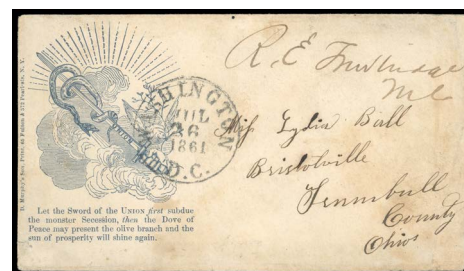 R. E. Trowbridge
M C
WASHINGTON
JUL
26
1861
D.C.
Miss Lydia Ball
Bristolville
Trumbull
County
Ohio
Let the Sword of the UNION first subdue
the monster Secession, then the Dove of
Peace may present the olive branch and the
sun of prosperity will shine again.
D. Murphy's Son, Print. 65 Fulton & 372 Pearl sts. N. Y.